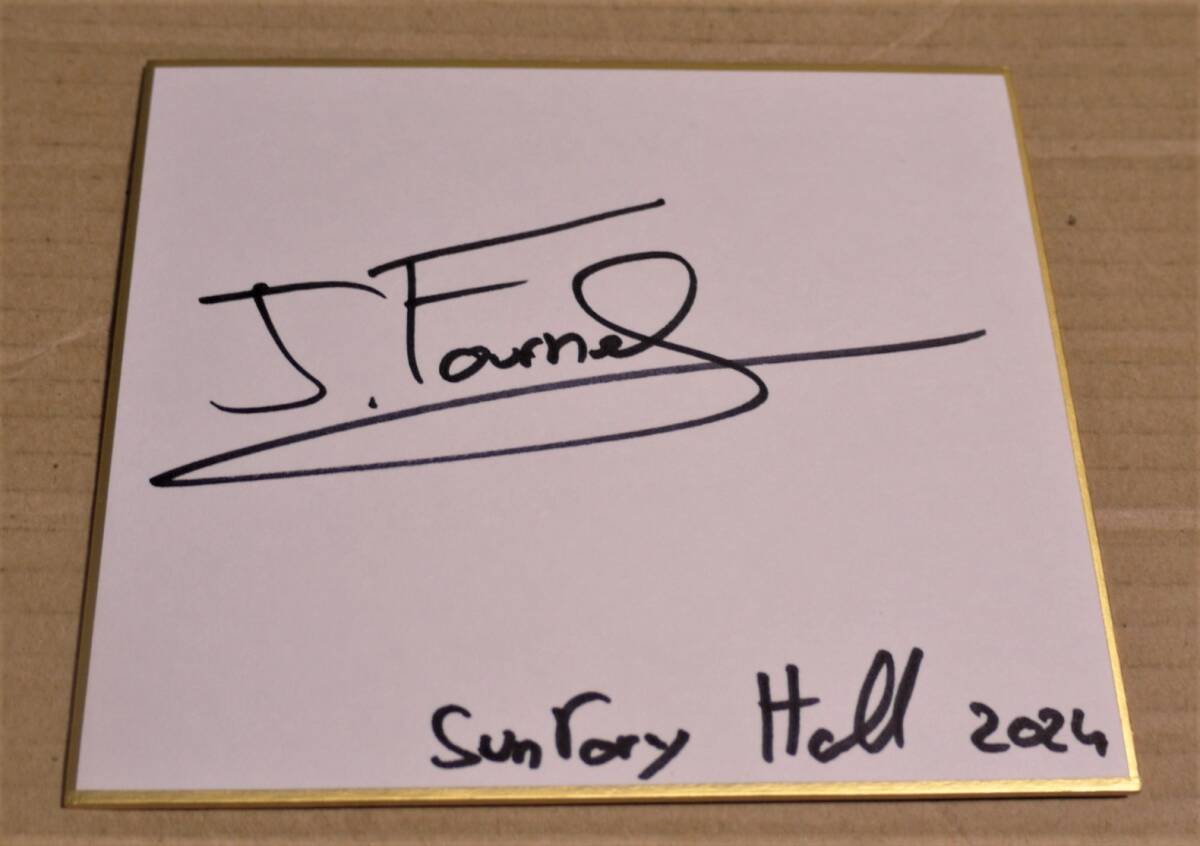 J. Fournel
Suntory Hall 2024